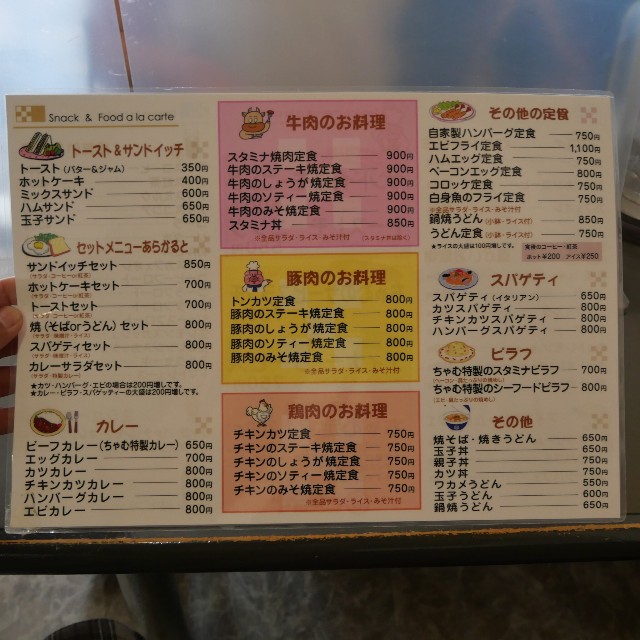 Snack & Food a la carte
トースト&サンドイッチ
トースト(バター&ジャム) 350円
ホットケーキ 400円
ミックスサンド 600円
ハムサンド 650円
玉子サンド 650円
セットメニューあらかると
サンドイッチセット 850円
(サラダ・コーヒーor紅茶)
ホットケーキセット 700円
(サラダ・コーヒーor紅茶)
トーストセット 700円
(サラダ・コーヒーor紅茶)
焼(そばorうどん)セット 800円
(サラダ・味噌汁・ライス)
スパゲティセット 800円
(サラダ・味噌汁・ライス)
カレーサラダセット 800円
(サラダ・特製カレー)
★カツ・ハンバーグ・エビの場合は200円増しです。
★カレー・ピラフ・スパゲッティーの大盛は200円増しです。
カレー
ビーフカレー(ちゃむ特製カレー) 650円
エッグカレー 700円
カツカレー 800円
チキンカツカレー 800円
ハンバーグカレー 800円
エビカレー 800円
牛肉のお料理
スタミナ焼肉定食 900円
牛肉のステーキ焼定食 900円
牛肉のしょうが焼定食 900円
牛肉のソティー焼定食 900円
牛肉のみそ焼定食 900円
スタミナ丼 850円
※全品サラダ・ライス・みそ汁付 (スタミナ丼は除く)
豚肉のお料理
トンカツ定食 800円
豚肉のステーキ焼定食 800円
豚肉のしょうが焼定食 800円
豚肉のソティー焼定食 800円
豚肉のみそ焼定食 800円
※全品サラダ・ライス・みそ汁付
鶏肉のお料理
チキンカツ定食 750円
チキンのステーキ焼定食 750円
チキンのしょうが焼定食 750円
チキンのソティー焼定食 750円
チキンのみそ焼定食 750円
※全品サラダ・ライス・みそ汁付
その他の定食
自家製ハンバーグ定食 750円
エビフライ定食 1,100円
ハムエッグ定食 750円
ベーコンエッグ定食 800円
コロッケ定食 750円
白身魚のフライ定食 750円
※全品サラダ・ライス・みそ汁付
鍋焼うどん(小鉢・ライス付) 850円
うどん定食(小鉢・ライス付) 750円
★ライスの大盛は100円増しです。
食後のコーヒー・紅茶
ホット¥200 アイス¥250
スパゲティ
スパゲティ(イタリアン) 650円
カツスパゲティ 800円
チキンカツスパゲティ 800円
ハンバーグスパゲティ 800円
ピラフ
ちゃむ特製のスタミナピラフ 700円
ちゃむ特製のシーフードピラフ 800円
その他
焼そば・焼きうどん 650円
玉子丼 650円
親子丼 650円
カツ丼 750円
ワカメうどん 550円
玉子うどん 600円
鍋焼うどん 650円